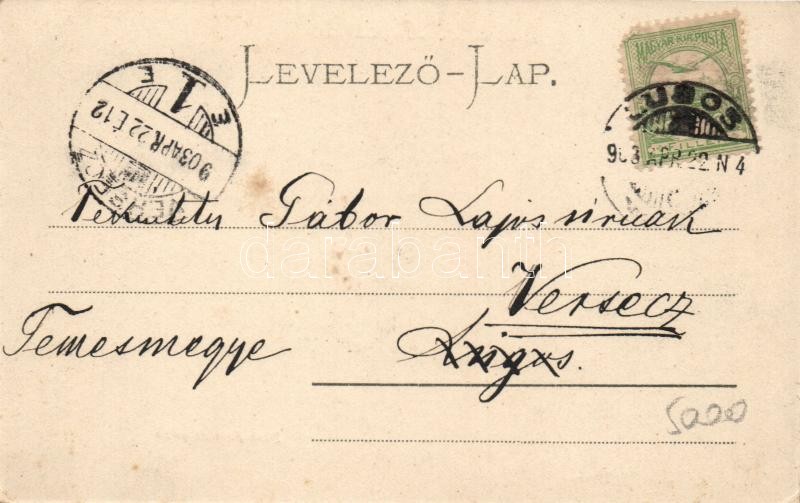 LEVELEZŐ-LAP.
MAGYAR KIR. POSTA
LUGOS
903 APR. 22. N 4
E E
1
903 APR 22 É. 12
VERSECZ
Gábor Lajos úrnak
Versecz
Temesmegye
Lugos.
5000
darabanth